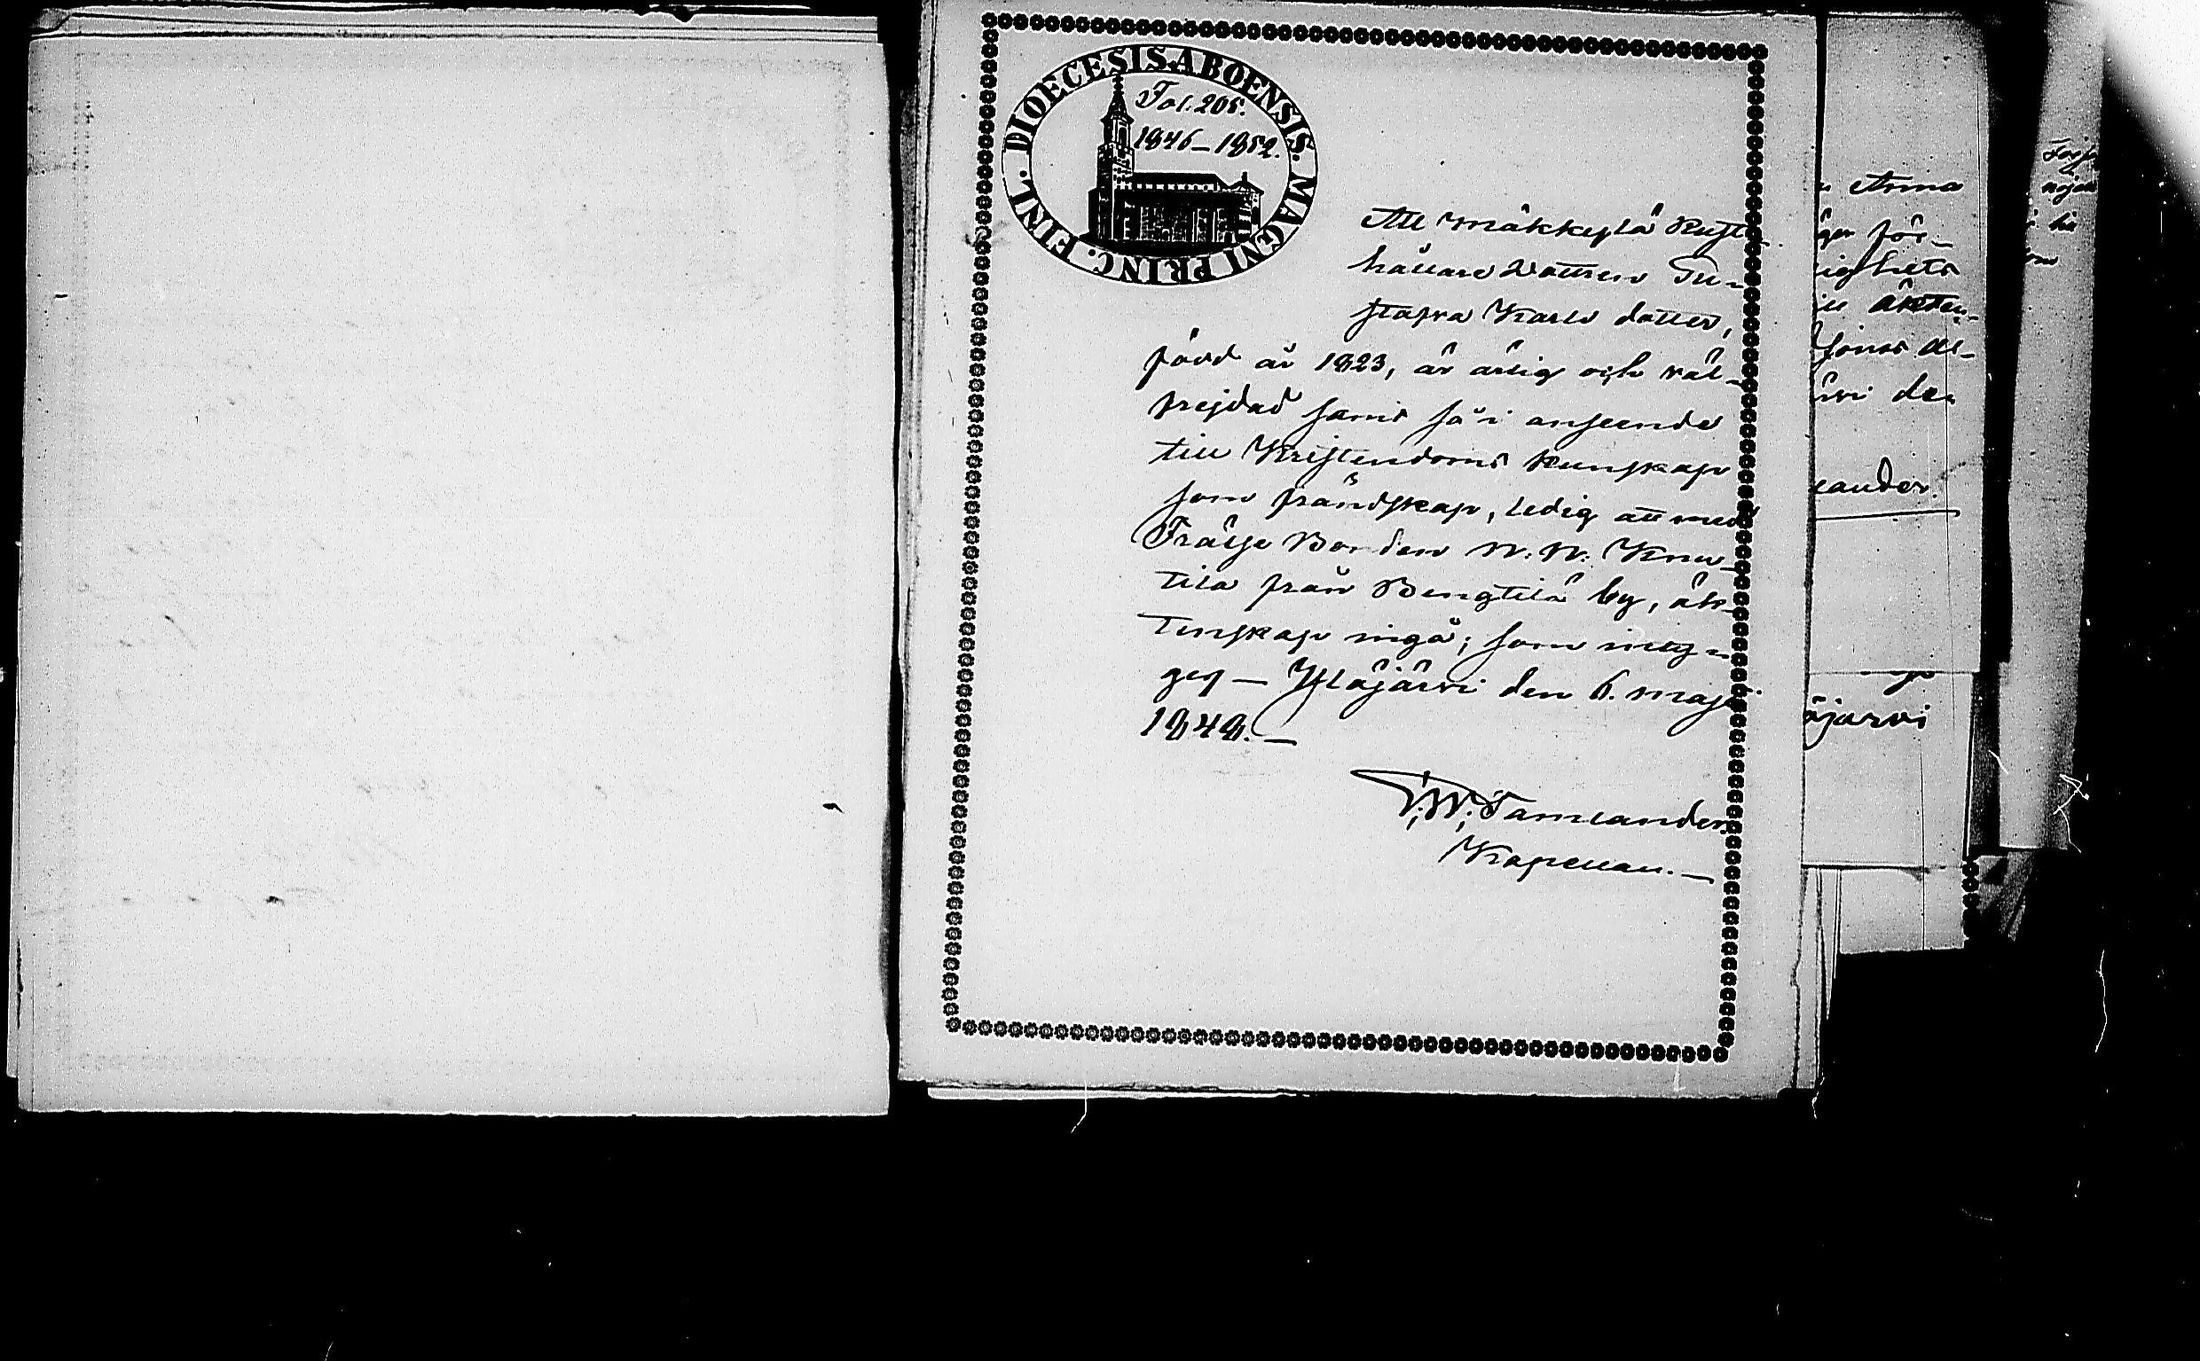 DIOECESIS ABOENSIS. MAGNI PRINC. FINL.
Fol. 205.
1846–1852.
Att Mäkkylä Rust-
hållare Dottren Gu-
stafva Karls dotter,
född år 1823, är ärlig och väl
frejdad samt så i anseende
till Kristendoms kunskap
som frändskap, ledig att med
Frälse Bonden
tila från Bengtilä by, äk-
tenskap ingå; som inty-
gas — Ylöjärvi den 6. maji
1848. —
Tamlander.
Kapellan. —
Anna
för-
äkten-
den
lander.
öjärvi